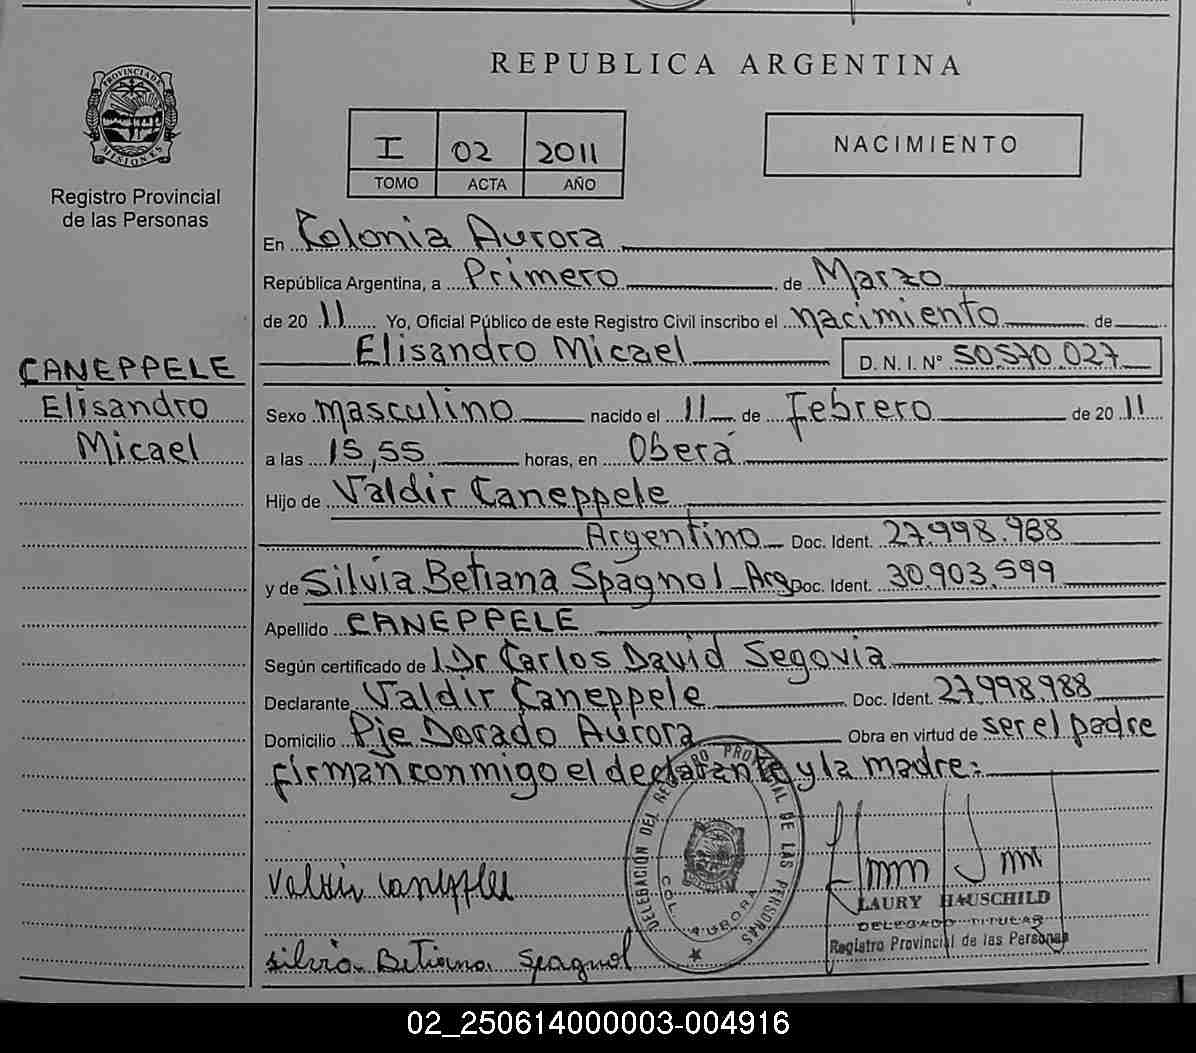 REPUBLICA ARGENTINA
PROVINCIA DE
MISIONES
Registro Provincial
de las Personas
I 02 2011
TOMO ACTA AÑO
NACIMIENTO
En Colonia Aurora
República Argentina, a Primero de Marzo
de 20 11 Yo, Oficial Público de este Registro Civil inscribo el nacimiento de
Elisandro Micael D. N. I. Nº 50.570.027
CANEPPELE
Elisandro
Micael
Sexo masculino nacido el 11 de Febrero de 20 11
a las 15,55 horas, en Oberá
Hijo de Valdir Caneppele
Argentino Doc. Ident. 27.998.988
y de Silvia Betiana Spagnol Arg Doc. Ident. 30.903.599
Apellido CANEPPELE
Según certificado de 1. Dr Carlos David Segovia
Declarante Valdir Caneppele Doc. Ident. 27.998.988
Domicilio Pje Dorado Aurora Obra en virtud de ser el padre
firman conmigo el declarante y la madre:
DELEGACION DEL REGISTRO PROVINCIAL DE LAS PERSONAS
COL. AURORA
Valdir Caneppele
LAURY HAUSCHILD
DELEGADO TITULAR
Registro Provincial de las Personas
Silvia Betiana Spagnol
02_250614000003-004916